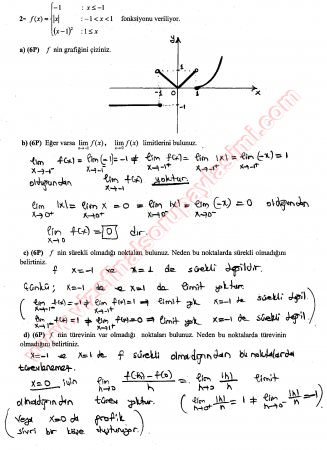 2- f(x) = { -1 : x ≤ -1
|x| : -1 < x < 1 fonksiyonu veriliyor.
(x-1)² : 1 ≤ x
a) (6P) f nin grafiğini çiziniz.
y
-1 0 1 x
-1
b) (6P) Eğer varsa lim x→-1 f(x), lim x→0 f(x) limitlerini bulunuz.
lim x→-1⁻ f(x) = lim x→-1⁻ (-1) = -1 ≠ lim x→-1⁺ f(x) = lim x→-1⁺ |x| = lim x→-1⁺ (-x) = 1
olduğundan lim x→-1 f(x) yoktur.
lim x→0⁺ |x| = lim x→0⁺ x = 0 = lim x→0⁻ |x| = lim x→0⁻ (-x) = 0 olduğundan
lim x→0 f(x) = 0 dır.
c) (6P) f nin sürekli olmadığı noktaları bulunuz. Neden bu noktalarda sürekli olmadığını
belirtiniz.
f x=-1 ve x=1 de sürekli değildir.
Çünkü; x=-1 de ve x=1 de limit yoktur.
(lim x→-1⁻ f(x) = -1 ≠ lim x→-1⁺ f(x) = 1 ⇒ limit yok x=-1 de sürekli değil)
f(x) = 1 ≠ f(x) = 0 ⇒ limit yok sürekli değil
d) (6P) f nin türevinin var olmadığı noktaları bulunuz. Neden bu noktalarda türevinin
olmadığını belirtiniz.
x=-1 ve x=1 de f sürekli olmadığından bu noktalarda
türevlenemez.
x=0 için lim h→0 f(0+h)-f(0) / h = lim h→0 |h| / h limit
olmadığından türev yoktur. (lim h→0⁺ |h|/h = 1 ≠ lim h→0⁻ |h|/h = -1)
(veya x=0 da grafik
sivri bir köşe oluşturuyor.)